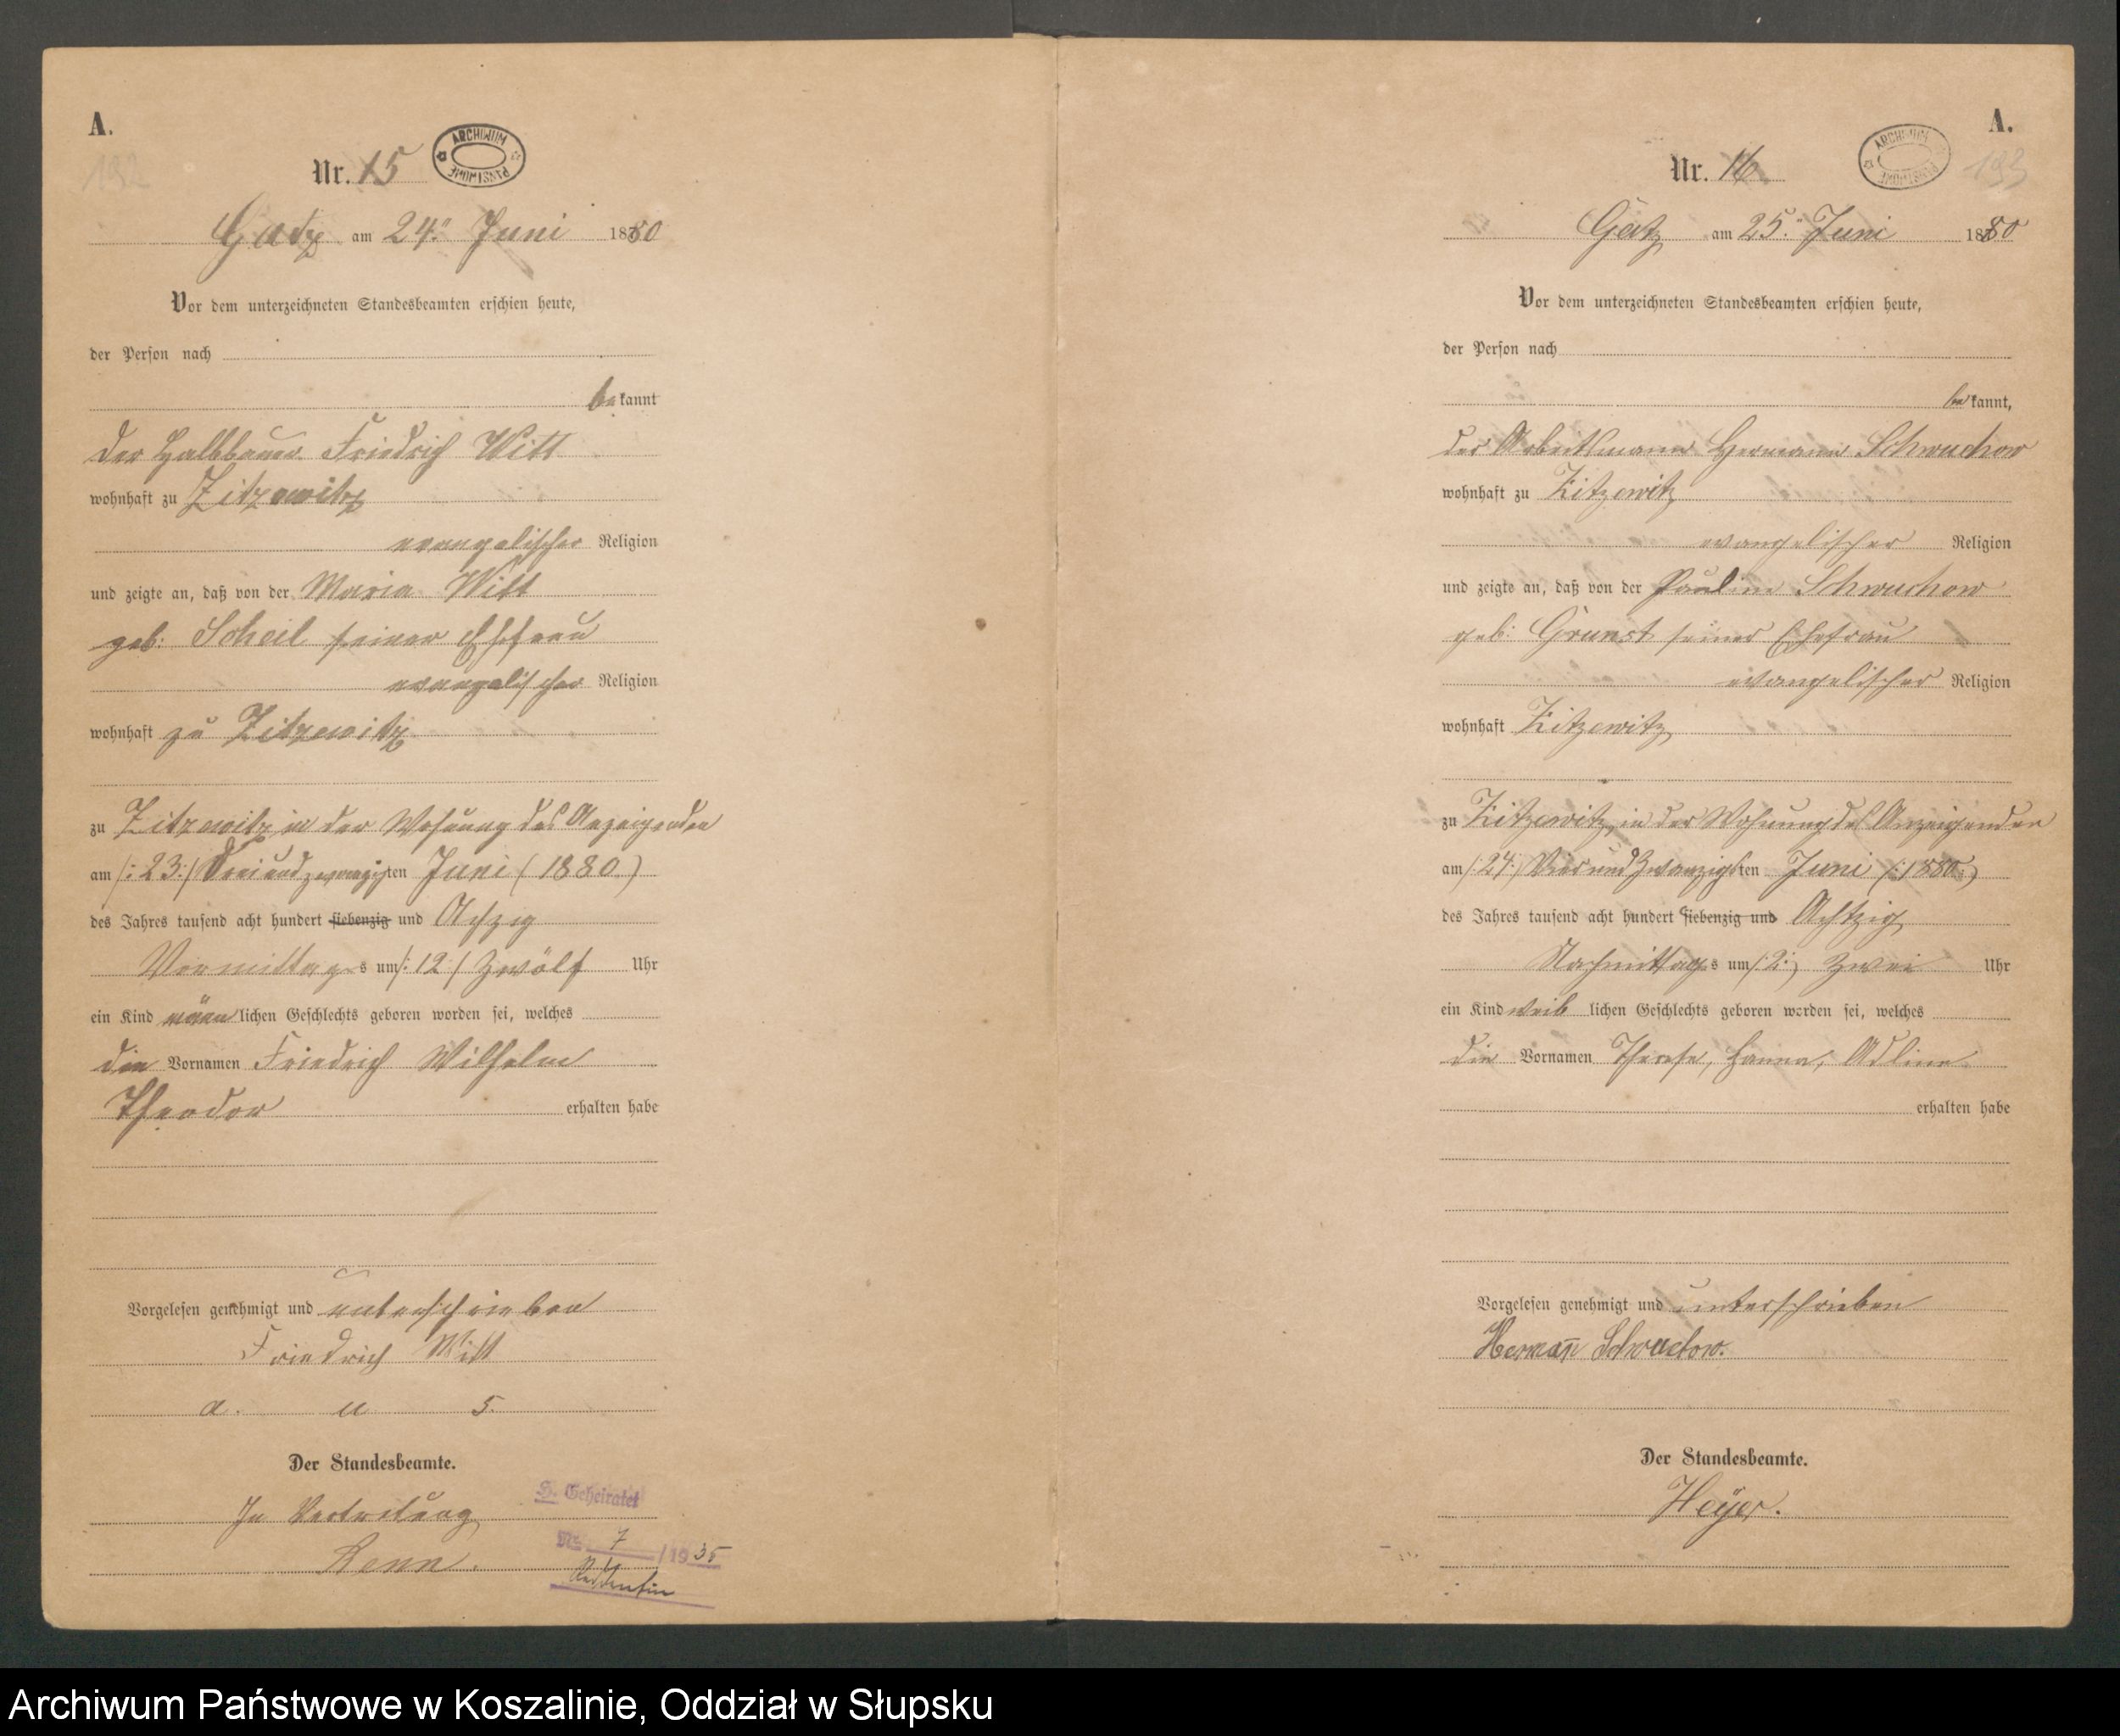 A.
192
Nr. 15
ARCHIWUM PAŃSTWOWE
Gatz am 24." Juni 1880
Vor dem unterzeichneten Standesbeamten erschien heute,
der Person nach
bekannt
der Halbbauer Friedrich Witt
wohnhaft zu Zitzewitz
evangelischer Religion
und zeigte an, daß von der Maria Witt
geb: Scheil seiner Ehefrau
evangelischer Religion
wohnhaft zu Zitzewitz
zu Zitzewitz in der Wohnung des Anzeigenden
am /: 23:/ Dreiundzwanzigsten Juni (1880.)
des Jahres tausend acht hundert siebenzig und Achzig
Vormittags um /: 12 / Zwölf Uhr
ein Kind männlichen Geschlechts geboren worden sei, welches
die Vornamen Friedrich Wilhelm
Theodor erhalten habe
Vorgelesen genehmigt und unterschrieben
Friedrich Witt
a. u. s.
Der Standesbeamte.
In Vertretung
H. Geheiratet
Nr. 7 / 1935
A.
193
Nr. 16
ARCHIWUM PAŃSTWOWE
Gatz am 25." Juni 1880
Vor dem unterzeichneten Standesbeamten erschien heute,
der Person nach
bekannt,
der Arbeitsmann Hermann Schwuchow
wohnhaft zu Zitzewitz
evangelischer Religion
und zeigte an, daß von der Pauline Schwuchow
geb: Grunst seiner Ehefrau
evangelischer Religion
wohnhaft Zitzewitz
zu Zitzewitz, in der Wohnung des Anzeigenden
am /: 24:/ Vierundzwanzigsten Juni (:1880:)
des Jahres tausend acht hundert siebenzig und Achtzig
Nachmittags um /:2:/ Zwei Uhr
ein Kind weiblichen Geschlechts geboren worden sei, welches
die Vornamen Therese, Hanna, Adline
erhalten habe
Vorgelesen genehmigt und unterschrieben
Herman̄ Schwuchow.
Der Standesbeamte.
Heÿer.
Archiwum Państwowe w Koszalinie, Oddział w Słupsku